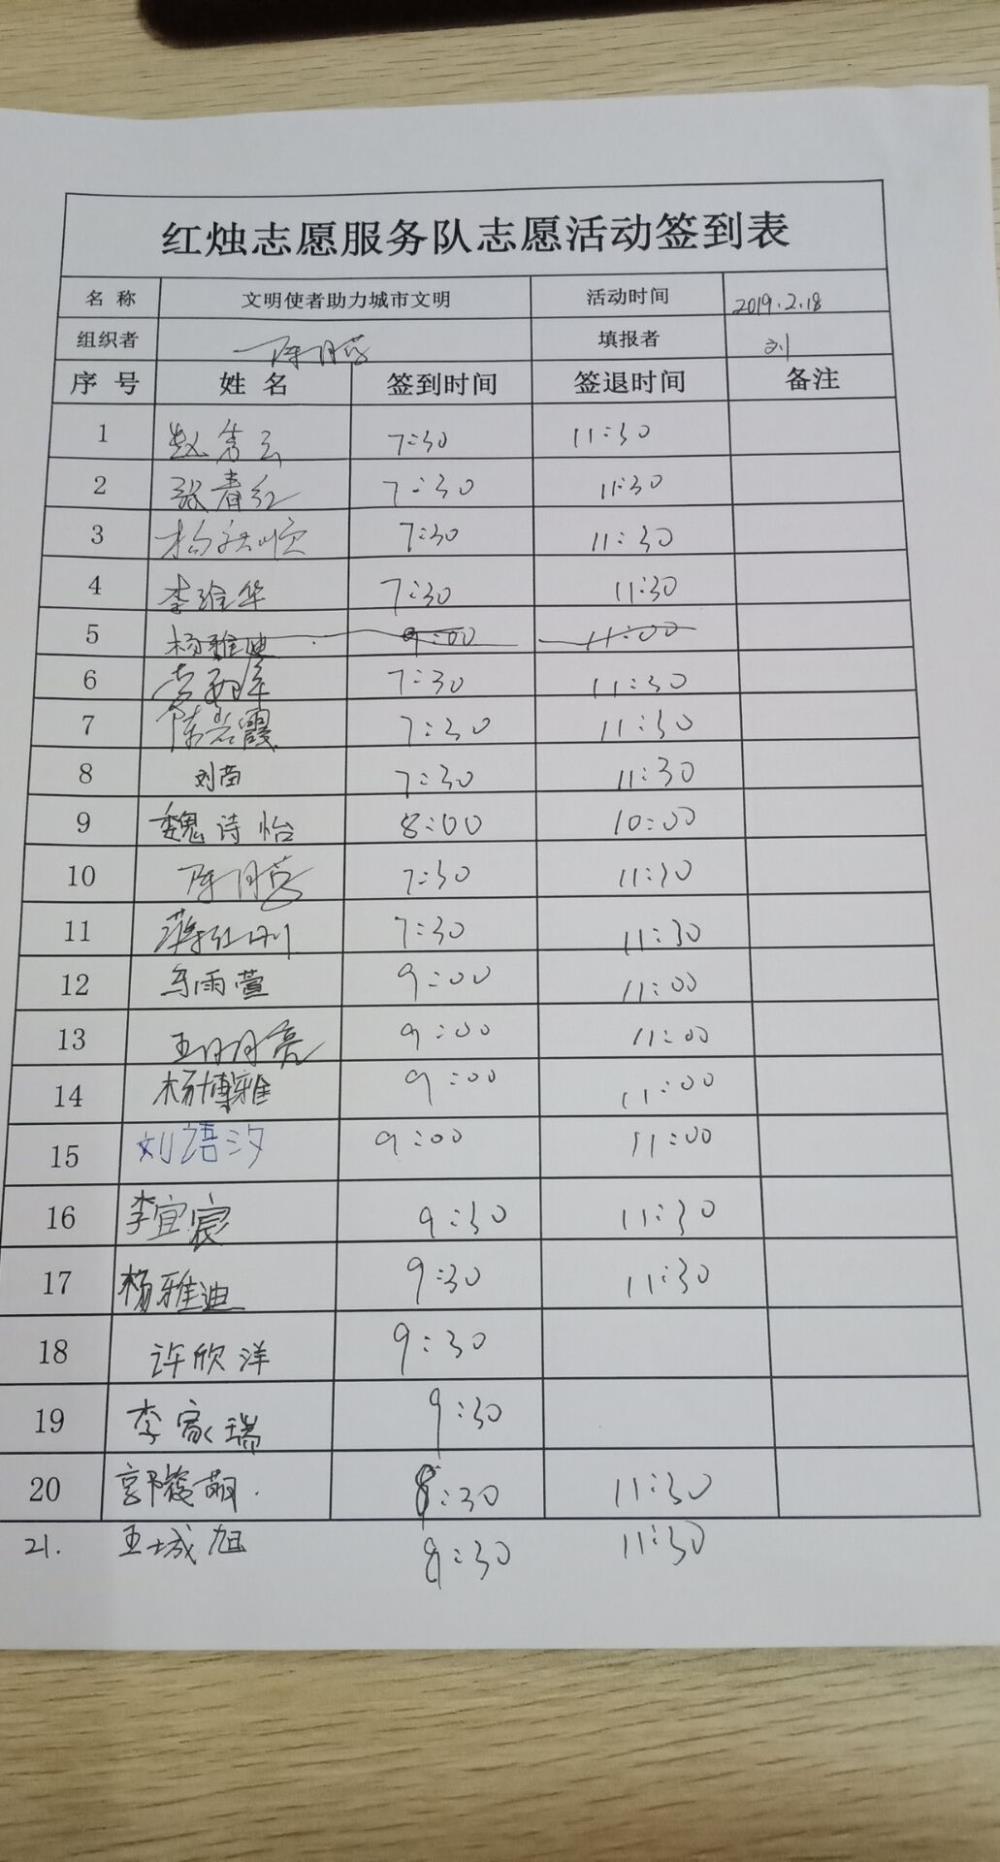 红烛志愿服务队志愿活动签到表
名称 文明使者助力城市文明 活动时间 2019.2.18
组织者 陈月莹 填报者 刘
序号 姓名 签到时间 签退时间 备注
1 赵秀云 7:30 11:30
2 张春红 7:30 11:30
3 杨 顺 7:30 11:30
4 李 华 7:30 11:30
5 杨雅迪 9:00 11:00
6 7:30 11:30
7 陈岩霞 7:30 11:30
8 刘苗 7:30 11:30
9 魏诗怡 8:00 10:00
10 陈月莹 7:30 11:30
11 蒋红 7:30 11:30
12 马雨萱 9:00 11:00
13 王月月亮 9:00 11:00
14 杨博雅 9:00 11:00
15 刘语汐 9:00 11:00
16 李宜宸 9:30 11:30
17 杨雅迪 9:30 11:30
18 许欣洋 9:30
19 李家瑞 9:30
20 郭 萌 8:30 11:30
21. 王城旭 8:30 11:30